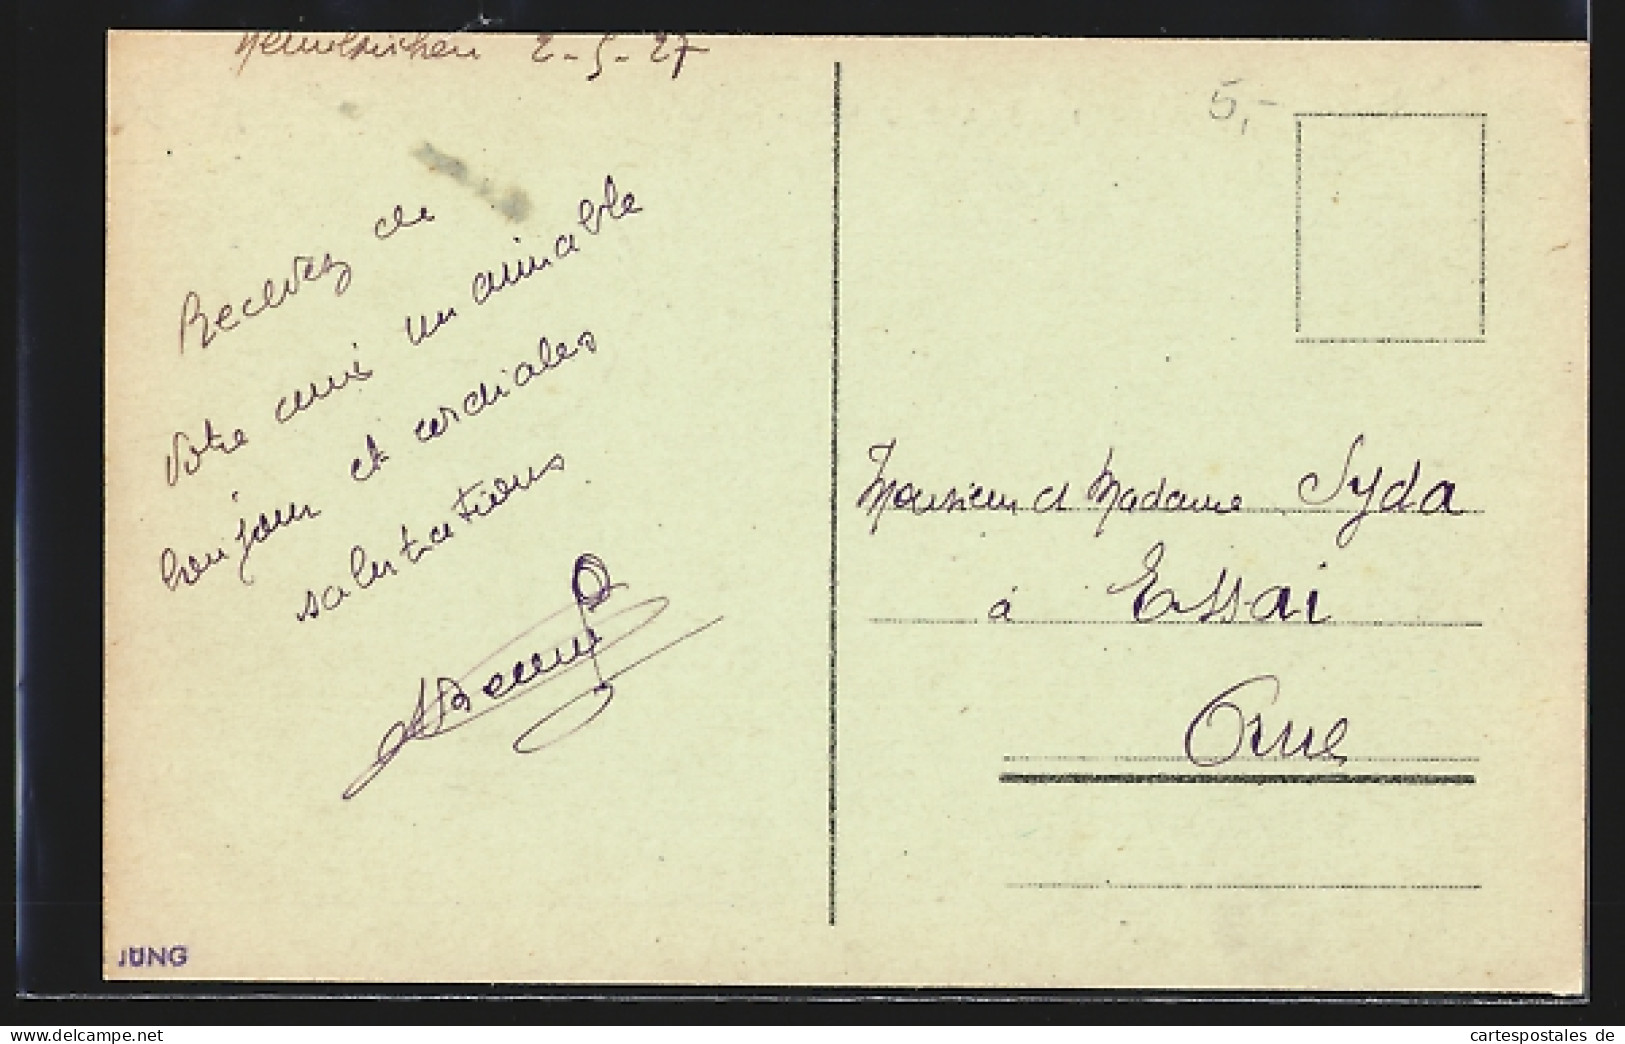 Neunkirchen 2-5-27
Recevez de
votre ami un aimable
bonjour et cordiales
salutations
5,-
Monsieur et Madame Syda
à Essai
Orne
JUNG
cartespostales de